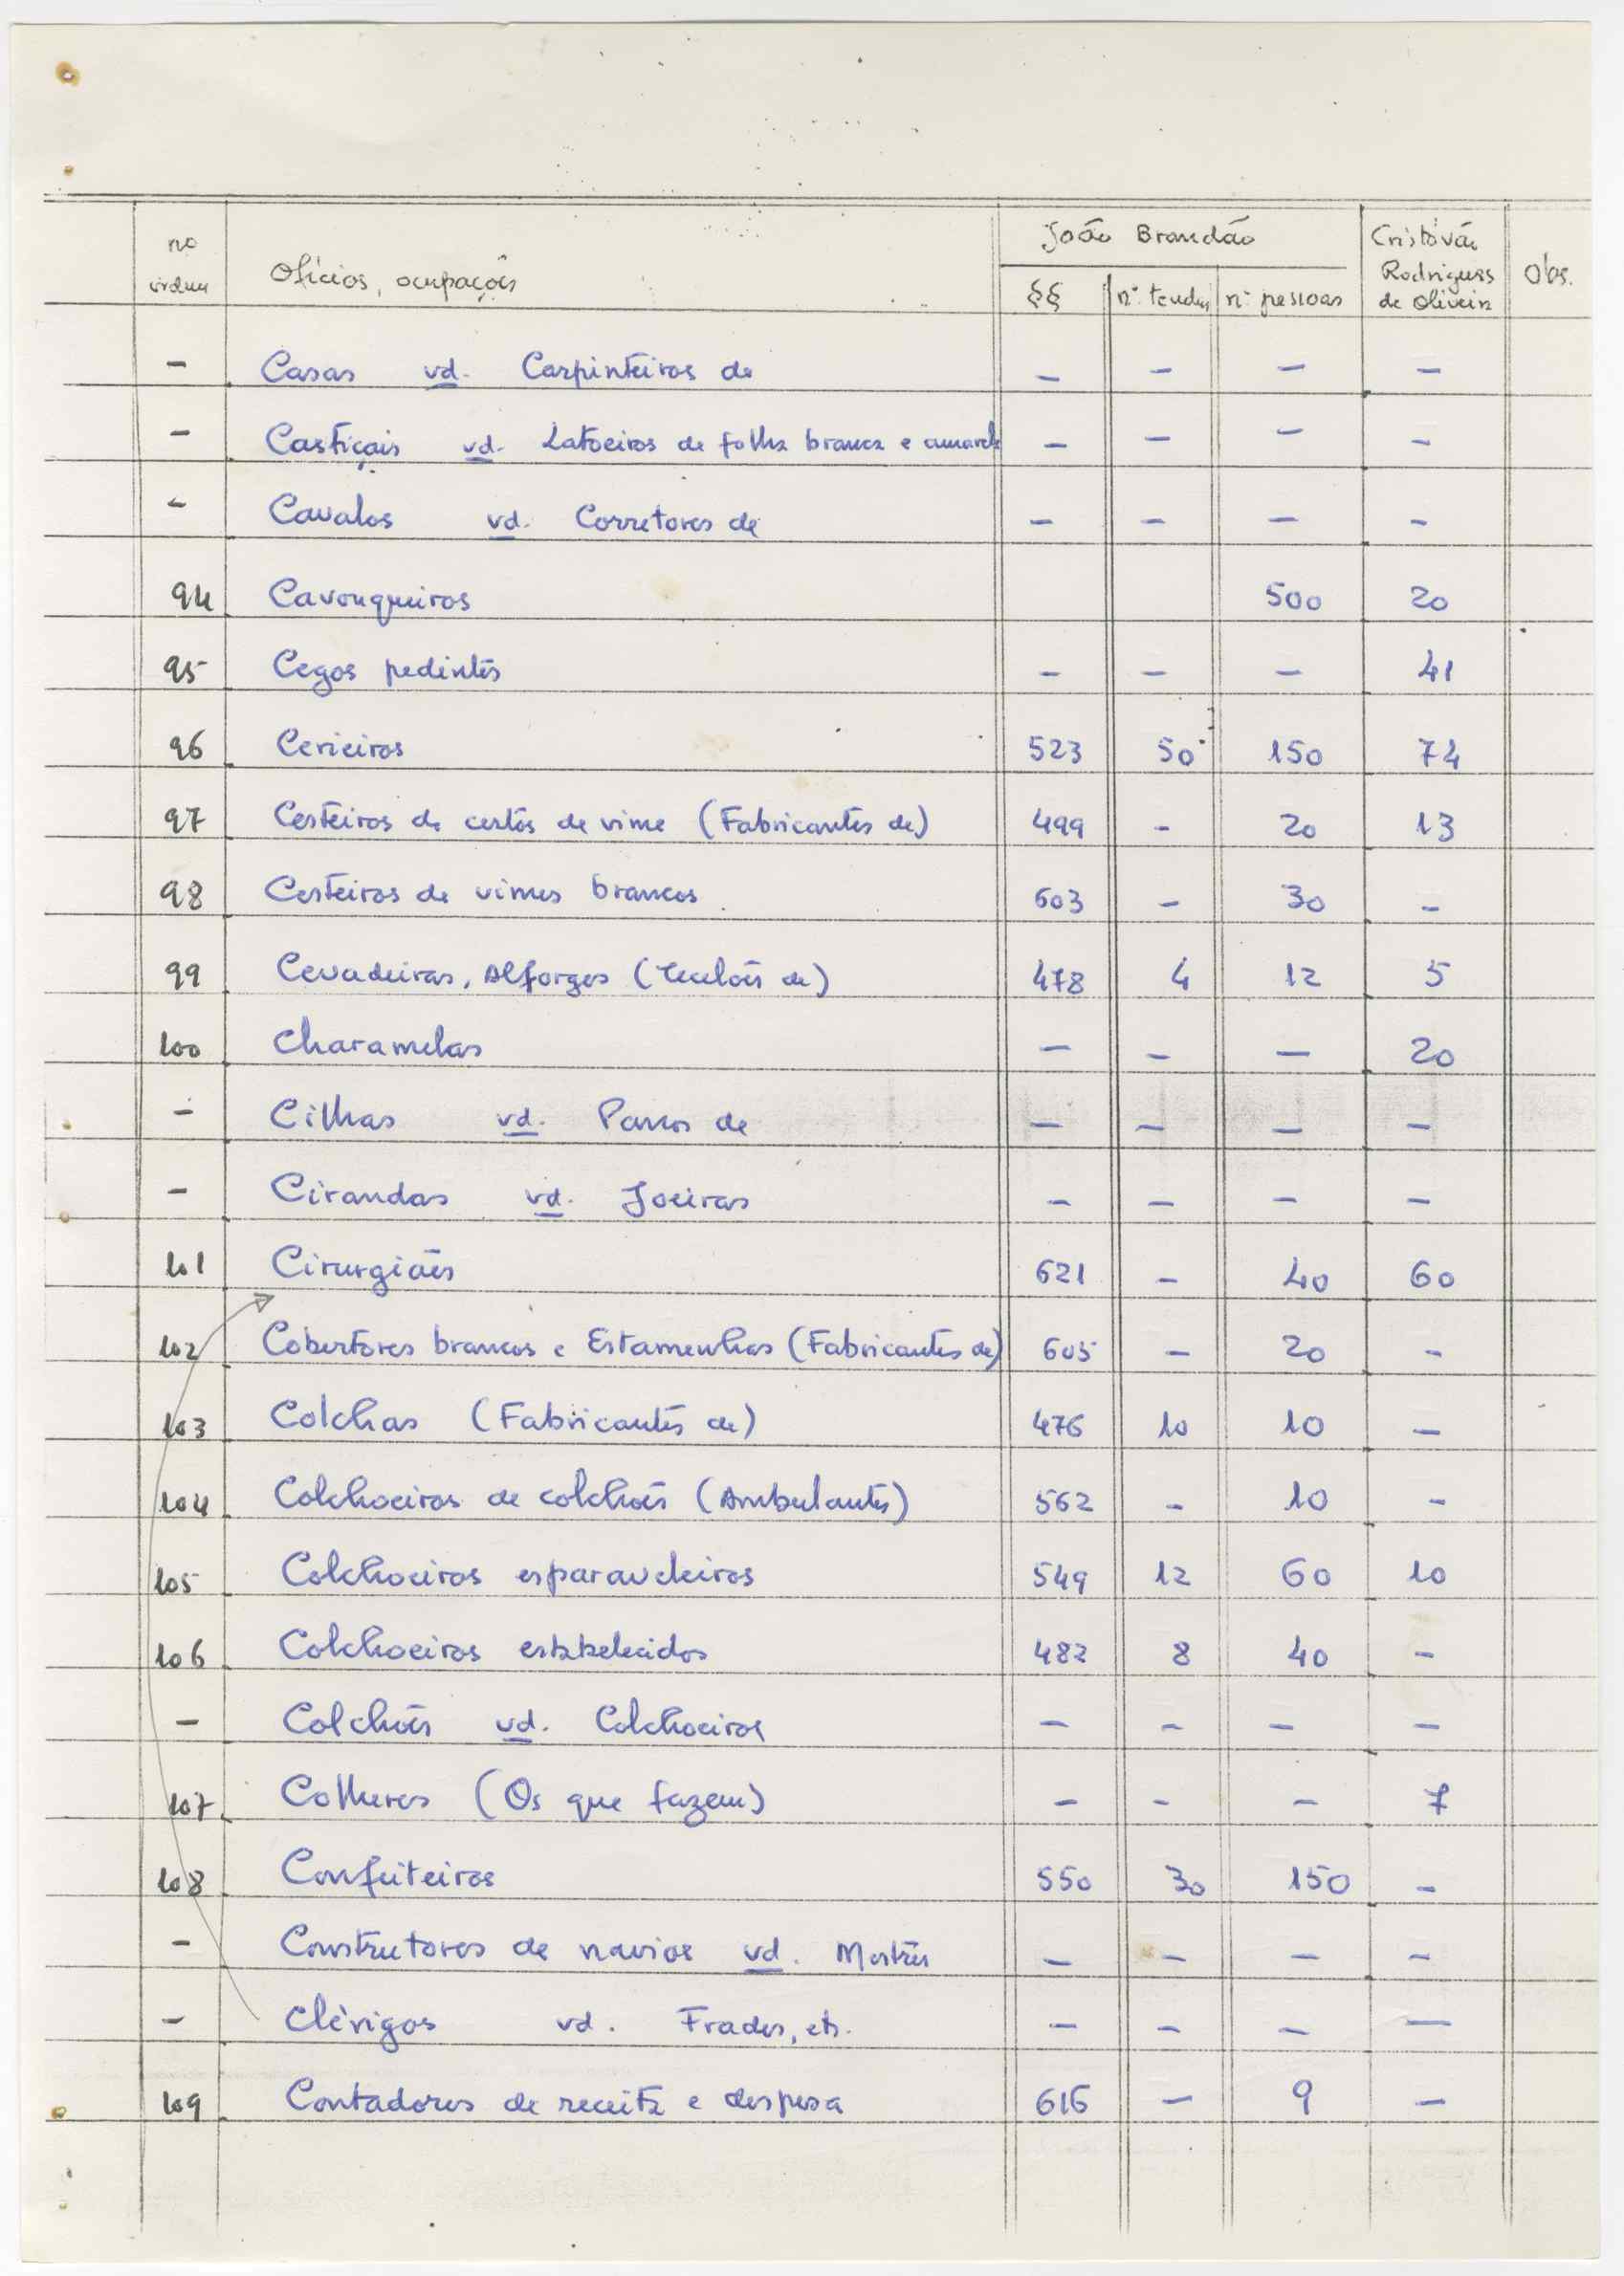 nº ordem | Ofícios, ocupações | João Brandão | Cristóvão Rodrigues de Oliveira | Obs.
§§ | nº tendas | nº pessoas
- Casas vd. Carpinteiros de - - - -
- Castiçais vd. Latoeiros de folha branca e amarela - - - -
- Cavalos vd. Corretores de - - - -
94 Cavouqueiros 500 20
95 Cegos pedintes - - - 41
96 Cerieiros 523 50 150 74
97 Cesteiros de cestos de vime (Fabricantes de) 499 - 20 13
98 Cesteiros de vimes brancos 603 - 30 -
99 Cevadeiras, Alforges (Tecelões de) 478 4 12 5
100 Charamelas - - - 20
- Cilhas vd. Panos de - - - -
- Cirandas vd. Joeiras - - - -
101 Cirurgiães 621 - 40 60
102 Cobertores brancos e Estamenhas (Fabricantes de) 605 - 20 -
103 Colchas (Fabricantes de) 476 10 10 -
104 Colchoeiros de colchões (Ambulantes) 562 - 10 -
105 Colchoeiros esparaveleiros 549 12 60 10
106 Colchoeiros estabelecidos 482 8 40 -
- Colchões vd. Colchoeiros - - - -
107 Colheres (Os que fazem) - - - 7
108 Confeiteiros 550 30 150 -
- Construtores de navios vd. Mestres - - - -
- Clérigos vd. Frades, etc. - - - -
109 Contadores de receita e despesa 616 - 9 -